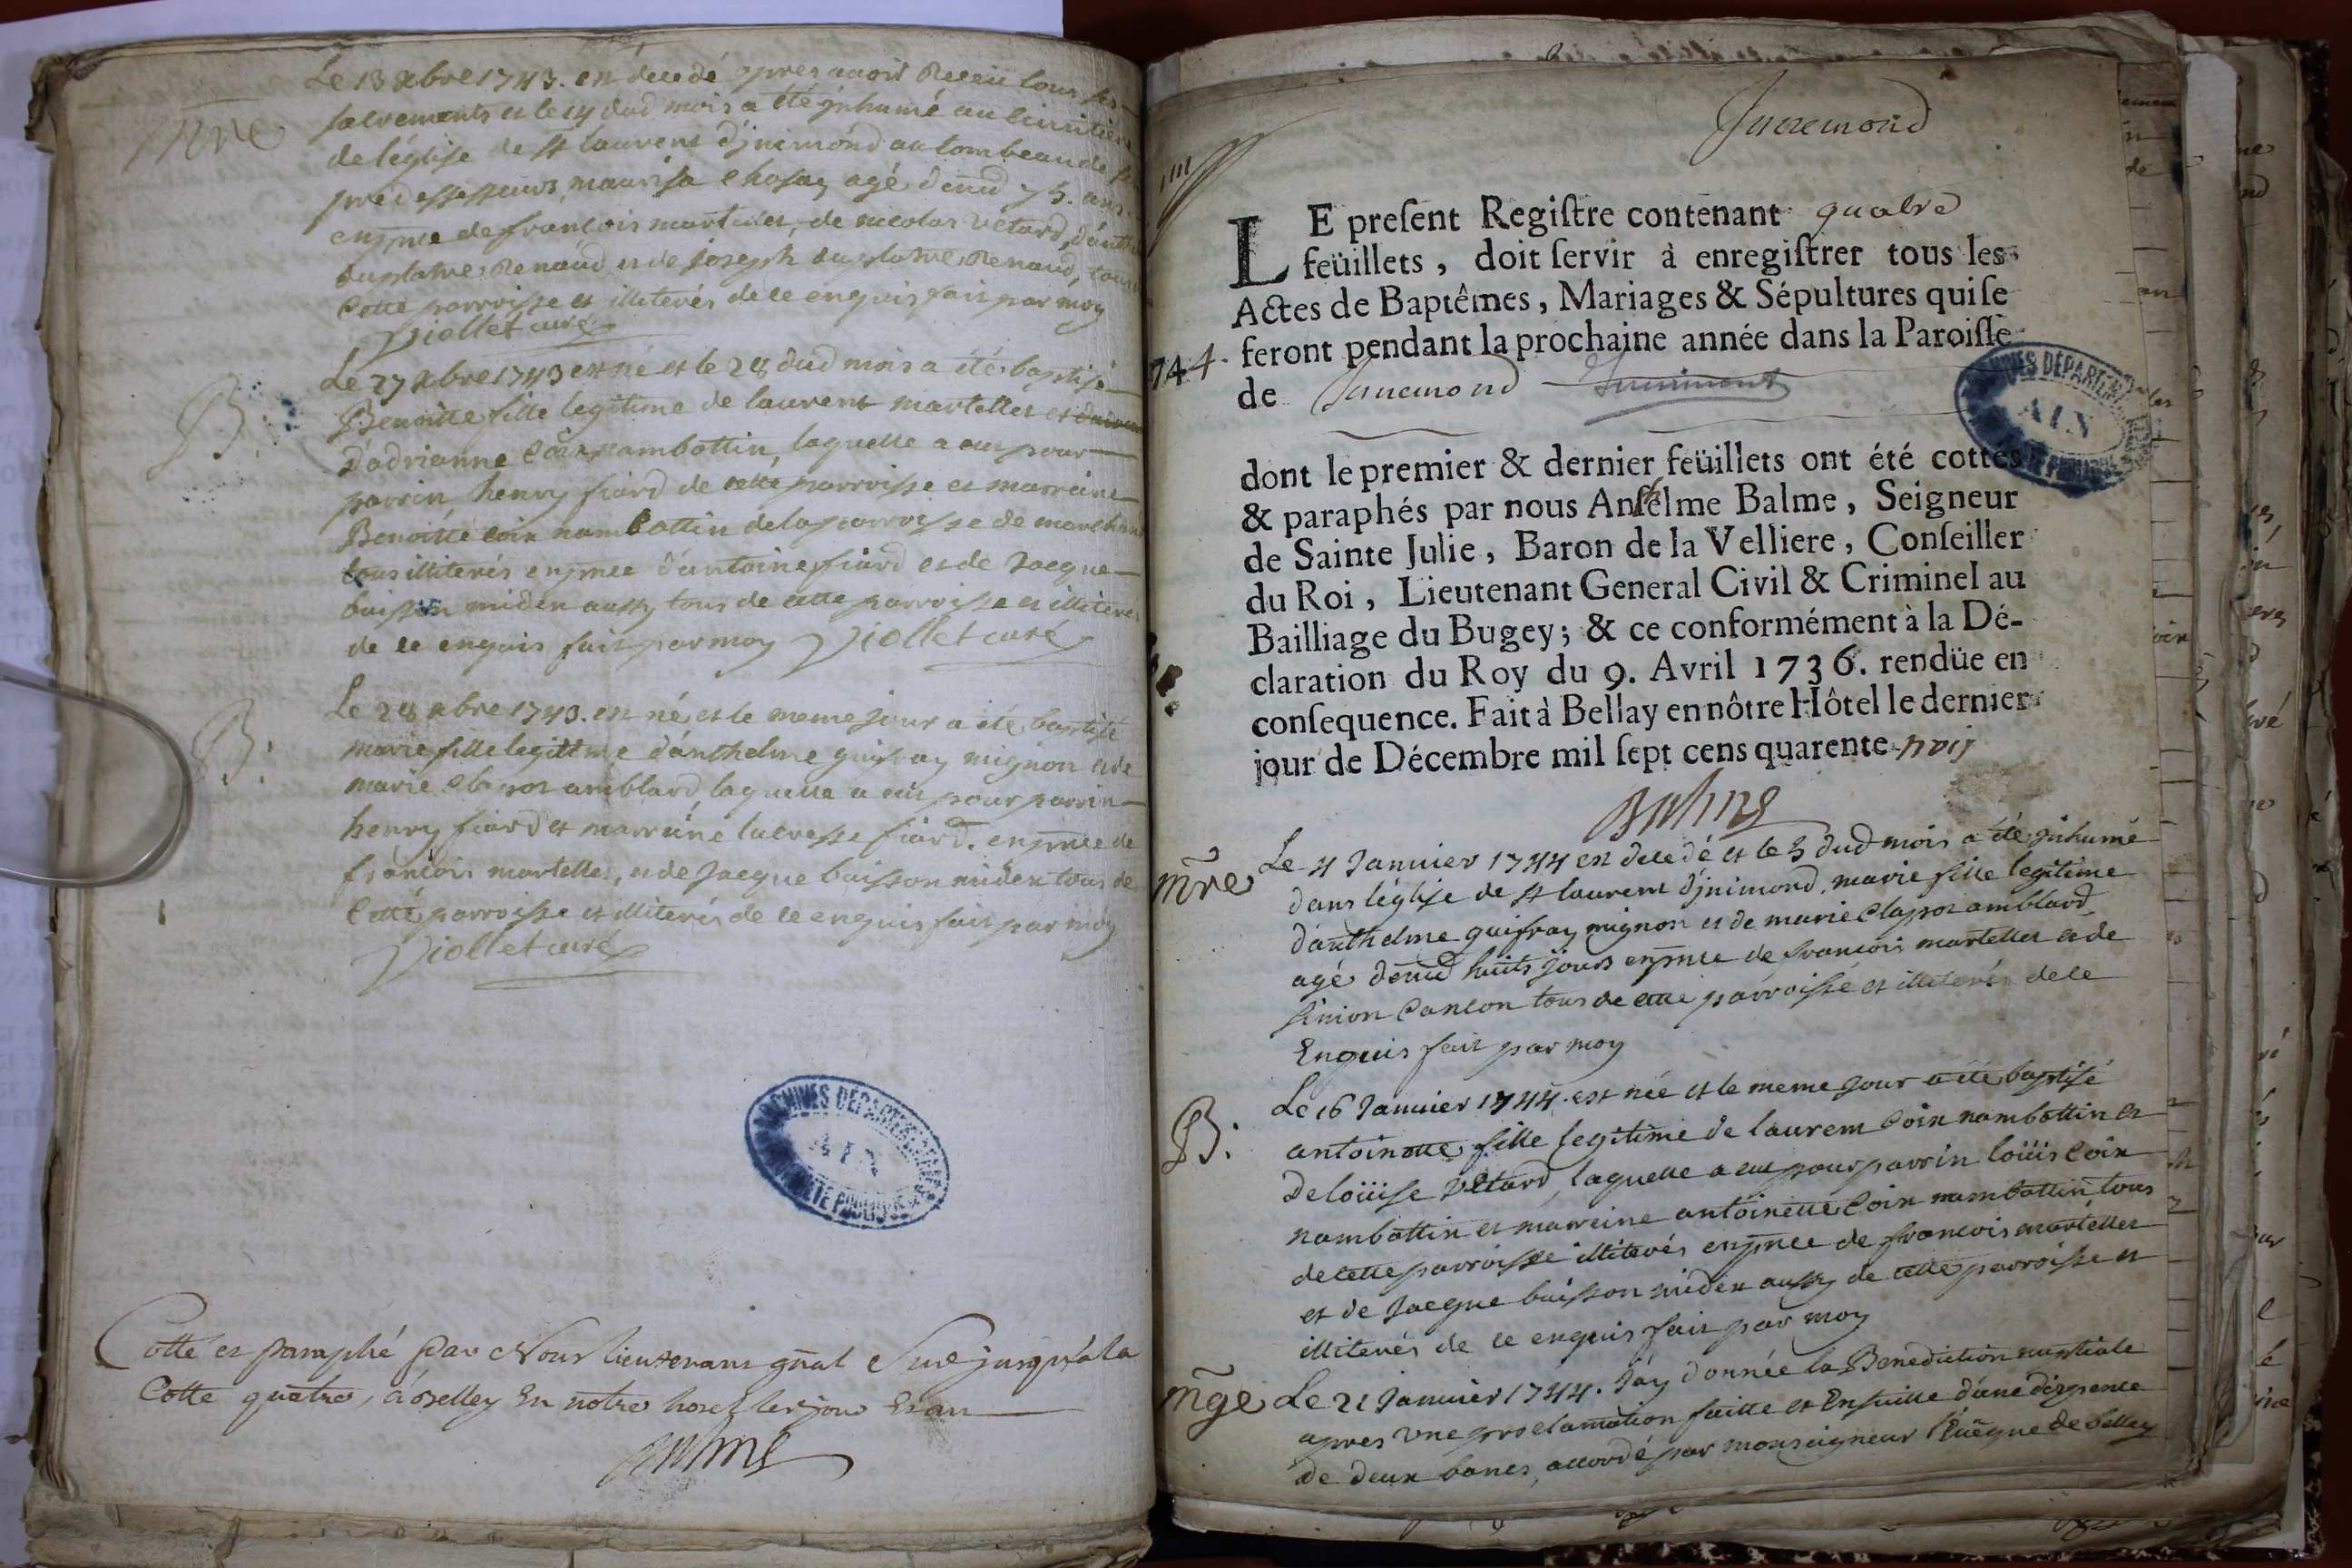 Le 13 xbre 1743. est decedé apres avoir Receu tous ses
sacrements et le 14 dud mois a été jnhumé au cimitiere
mre
de léglise de st laurent d'jnimond au tombeau de ses
predessesseurs, maurisa chosay agé denvd 75. ans
enpnce de francois martelles, de nicolas vétard, d'anth
duplatre Renaud et de joseph duplatre Renaud, tous
cette parroisse et illiterés de ce enquis fait par moy
Viollet curé
B.
Le 27 xbre 1743 est né et le 28 dud mois a été baptisé
Benoitte fille legitime de laurent martelles et
D'adrianne Coix nambottin, laquelle a eu pour
parrin henry fiard de cette parroisse et marreine
Benoitte coix nambottin de la parroisse de marchan
tous illiterés enpnce d'antoine fiard et de Jacque
buisson miden aussy tous de cette parroisse et illiterés
de ce enquis fait par moy Viollet curé
B.
Le 28 xbre 1743. est né et le meme jour a été baptisé
marie fille legittime d'anthelme guifray mignon et de
marie clapot amblard, laquelle a eu pour parrin
henry fiard et marreine lucresse fiard. enpnce de
francois martelles, et de Jacque buisson miden tous de
Cette parroisse et illiterés de ce enquis fait par moy
Viollet curé
ARCHIVES DÉPARTEMENTALES
AIN
Cotté et Paraphé Par Nous Lieutenant gñal Suse jusqu'a la
Cotte quatre, à Belley En notre hotel les jour Et an
Balme
Jnnemond
LE present Registre contenant quatre
feüillets, doit servir à enregistrer tous les
Actes de Baptêmes, Mariages & Sépultures qui se
744. feront pendant la prochaine année dans la Paroisse
de Jnnemond
ARCHIVES DÉPARTEMENTALES
AIN
dont le premier & dernier feüillets ont été cottés
& paraphés par nous Anthelme Balme, Seigneur
de Sainte Julie, Baron de la Velliere, Conseiller
du Roi, Lieutenant General Civil & Criminel au
Bailliage du Bugey; & ce conformément à la Dé-
claration du Roy du 9. Avril 1736. rendüe en
consequence. Fait à Bellay en nôtre Hôtel le dernier
jour de Décembre mil sept cens quarente trois
Balme
mre
Le 4 Janvier 1744 est decedé et le 5 dud mois a été jnhumé
dans léglise de st laurent d'jnimond, marie fille legitime
d'anthelme guifray mignon et de marie Clapot amblard
agé denvd huits jours enpnce de francois martelles et de
simon Canlon tous de cette parroisse et illiterés de ce
Enquis fait par moy
B.
Le 16 Janvier 1744. est née et le meme jour a été baptisé
antoinette fille legitime de laurent Coix nambottin et
de loüise vétard, laquelle a eu pour parrin loüis Coix
nambottin et marreine antoinette Coix nambottin tous
de cette parroisse illiterés enpnce de francois martelles
et de Jacque buisson miden aussy de cette parroisse et
illiterés de ce enquis fait par moy
mge
Le 21 Janvier 1744. J'ay donnée la Benediction nuptiale
apres une proclamation faitte et Ensuitte d'une dispence
de deux bancs, accordé par monseigneur l'Evêque de belley